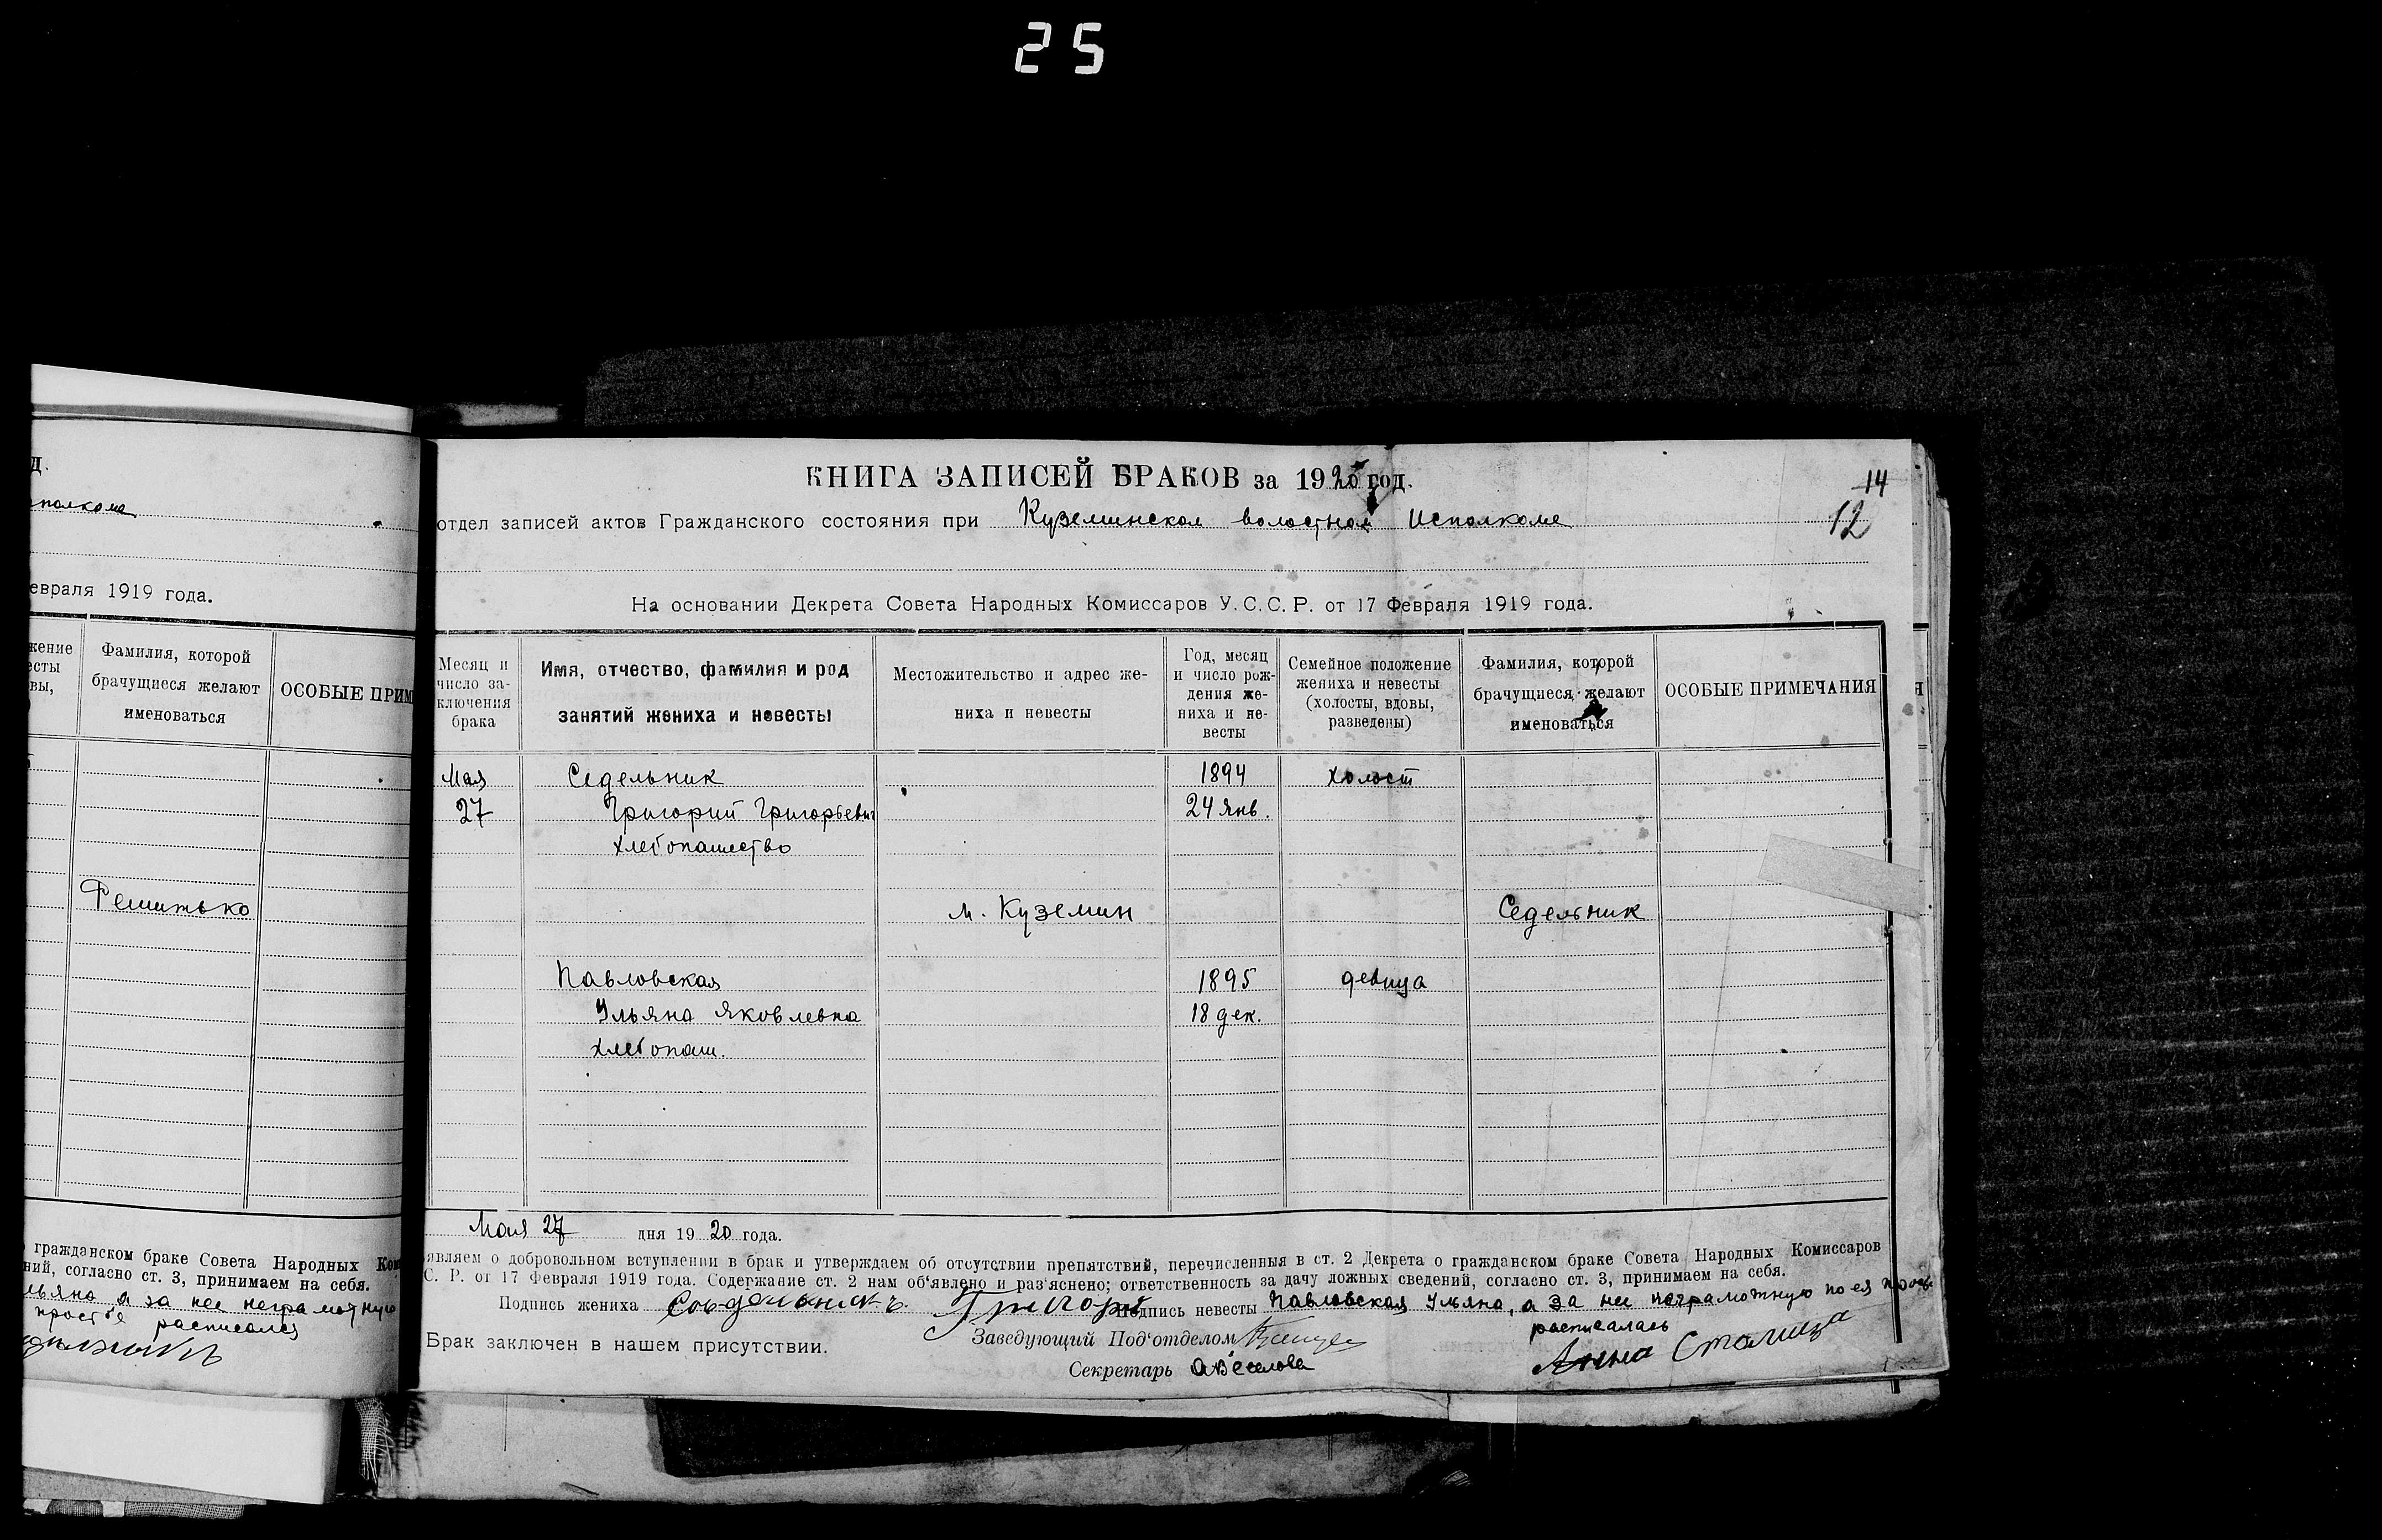 25
д.
сполкома
евраля 1919 года.
жение
есты
вы,
Фамилия, которой
брачущиеся желают
именоваться
ОСОБЫЕ ПРИМ
Решитько
гражданском браке Совета Народных Ком
ний, согласно ст. 3, принимаем на себя.
льяна а за нее неграмотную
просьбе расписался
КНИГА ЗАПИСЕЙ БРАКОВ за 1920 год.
14
отдел записей актов Гражданского состояния при Куземинском волостном Исполкоме
12
На основании Декрета Совета Народных Комиссаров У.С.С.Р. от 17 Февраля 1919 года.
Месяц и
число за-
ключения
брака
Имя, отчество, фамилия и род
занятий жениха и невесты
Местожительство и адрес же-
ниха и невесты
Год, месяц
и число рож-
дения же-
ниха и не-
весты
Семейное положение
жениха и невесты
(холосты, вдовы,
разведены)
Фамилия, которой
брачущиеся желают
именоваться
ОСОБЫЕ ПРИМЕЧАНИЯ
Мая Седельник 1894 холост
27 Григорий Григорьевич 24 янв.
хлебопашество
м. Куземин Седельник
Павловская 1895 девица
Ульяна Яковлевна 18 дек.
хлебопаш.
Мая 27 дня 1920 года.
являем о добровольном вступлении в брак и утверждаем об отсутствии препятствий, перечисленныя в ст. 2 Декрета о гражданском браке Совета Народных Комиссаров
С. Р. от 17 Февраля 1919 года. Содержание ст. 2 нам об'явлено и раз'яснено; ответственность за дачу ложных сведений, согласно ст. 3, принимаем на себя.
Подпись жениха Григорий Подпись невесты Павловская Ульяна, а за нее неграмотную по ея просьбе
расписалась
Брак заключен в нашем присутствии.
Заведующий Под'отделом
Анна Столица
Секретарь АВеселова